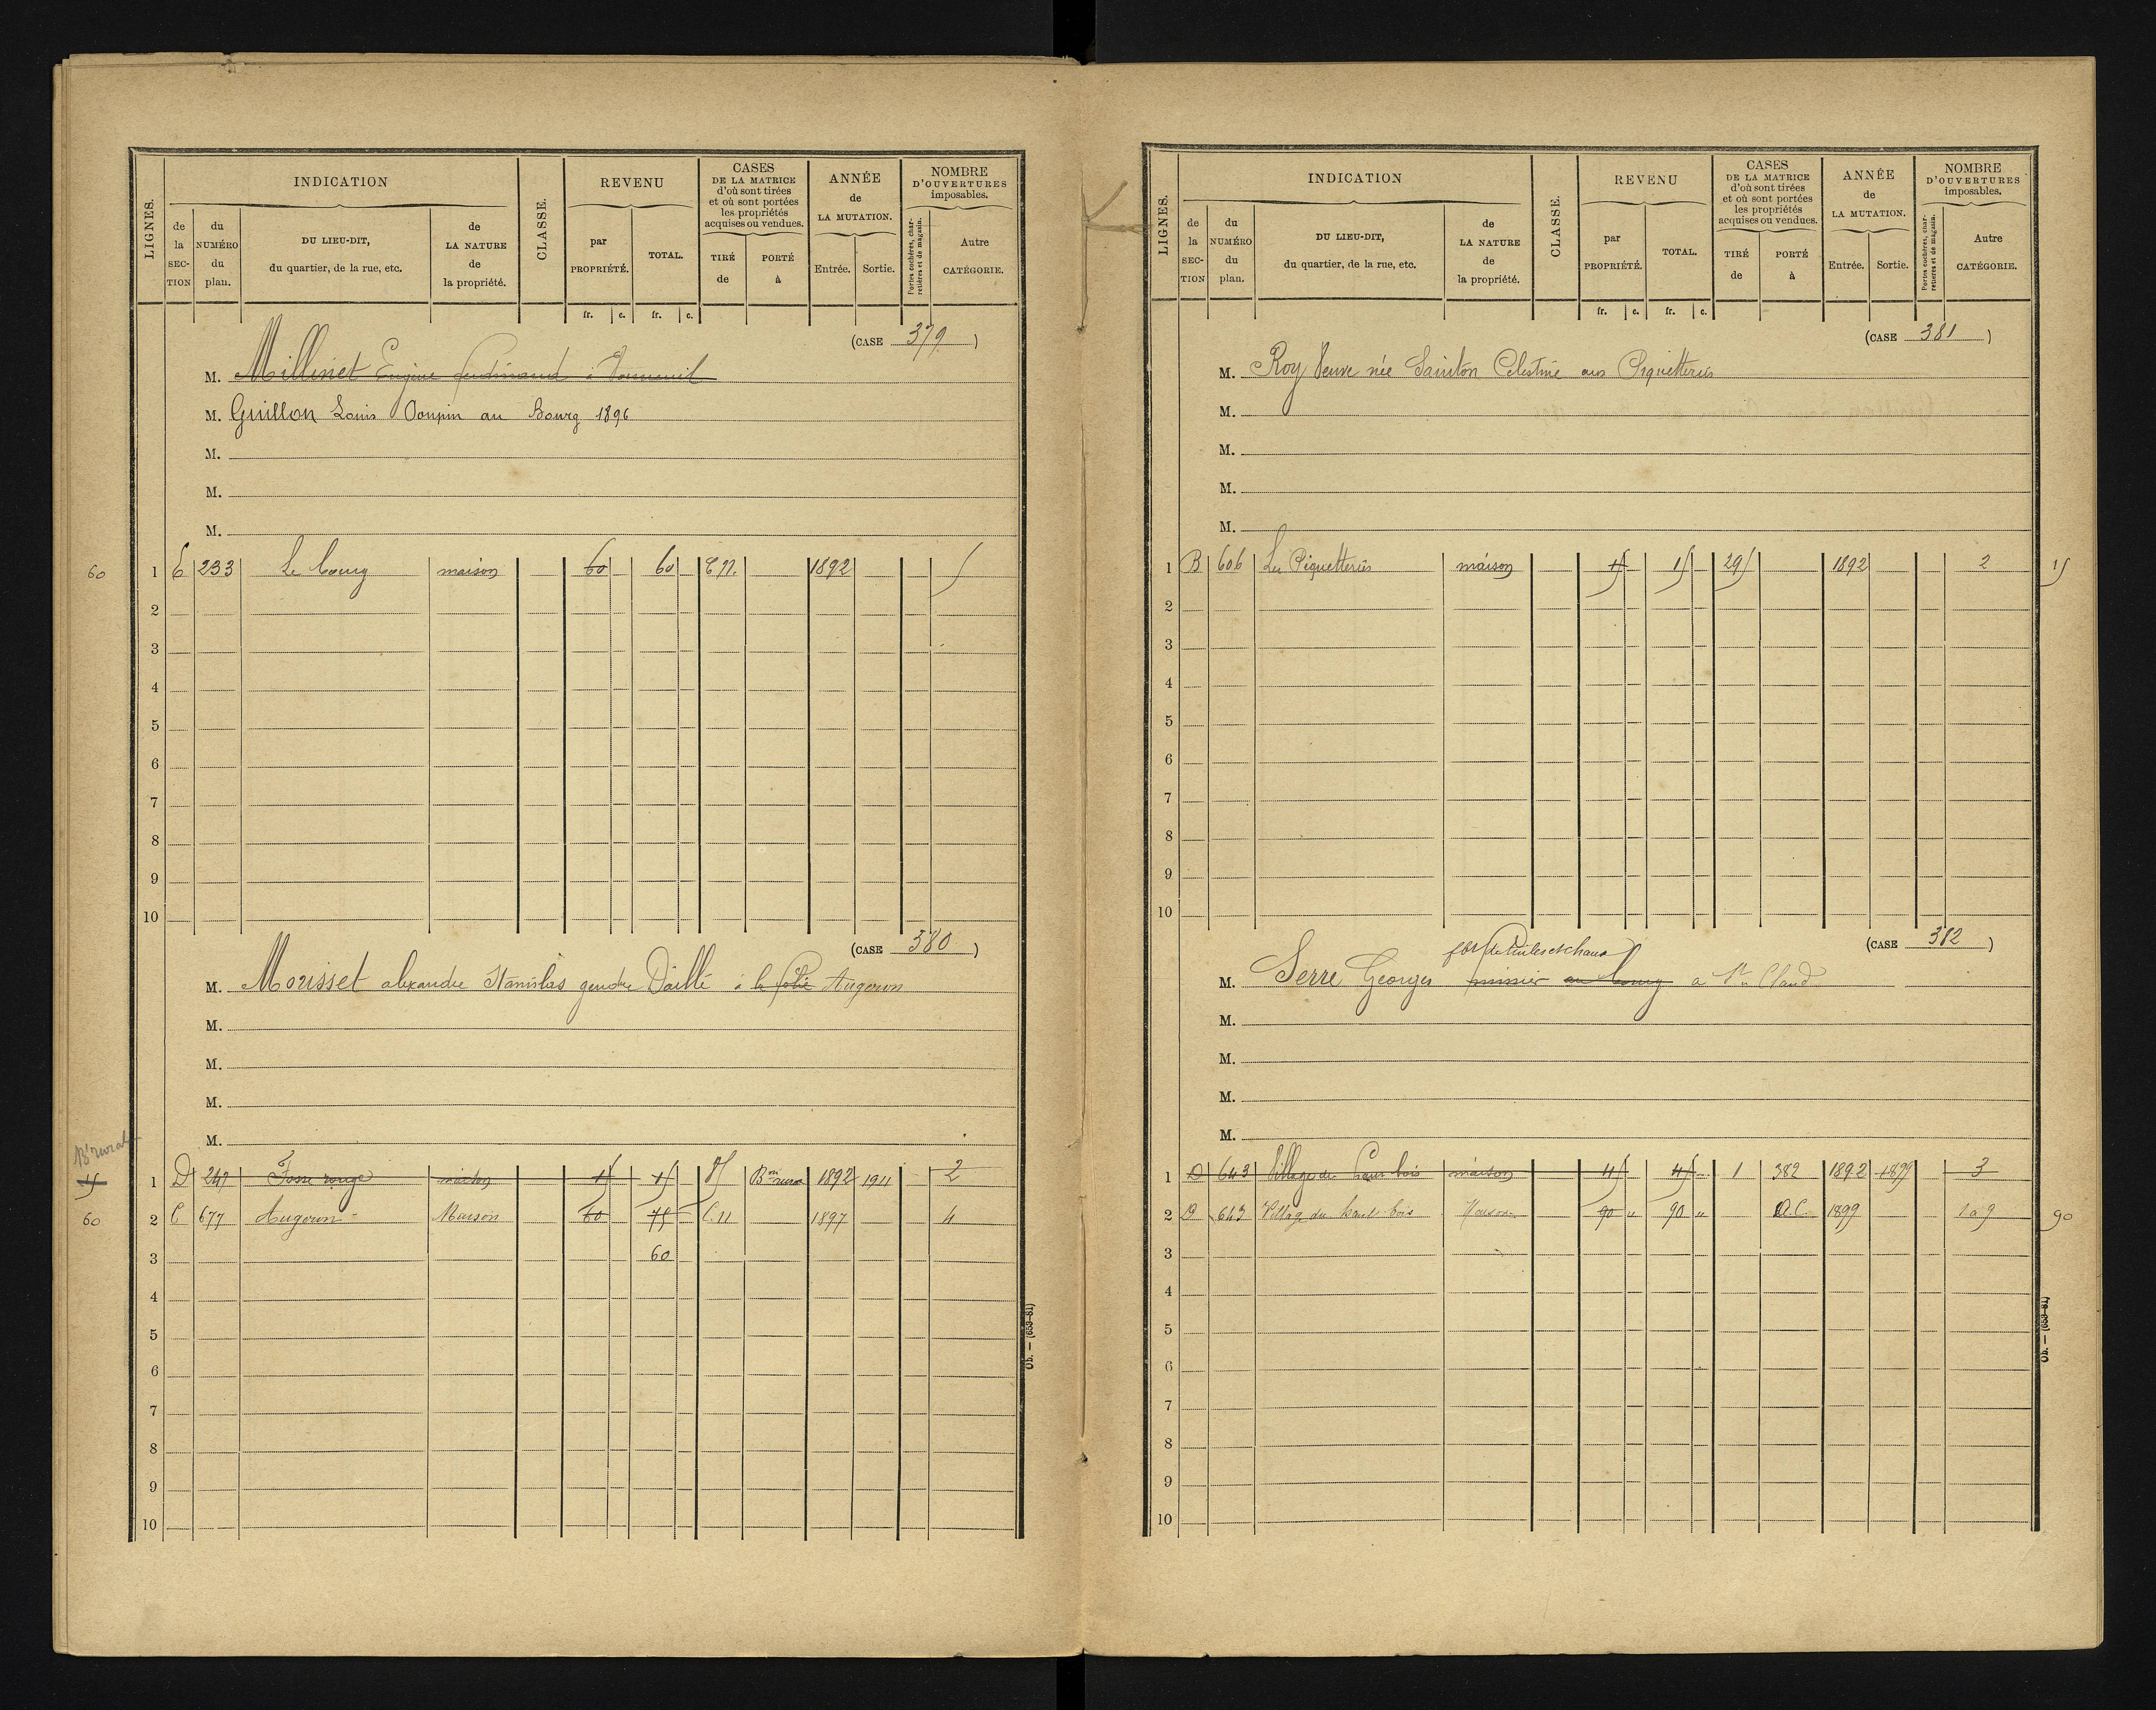 LIGNES.
INDICATION
de la SECTION
du NUMÉRO du plan.
DU LIEU-DIT, du quartier, de la rue, etc.
de LA NATURE de la propriété.
CLASSE.
REVENU
par PROPRIÉTÉ.
TOTAL.
CASES DE LA MATRICE d'où sont tirées et où sont portées les propriétés acquises ou vendues.
TIRÉ de
PORTÉ à
ANNÉE de LA MUTATION.
Entrée.
Sortie.
NOMBRE D'OUVERTURES imposables.
Portes cochères, charretières et de magasin.
Autre CATÉGORIE.
fr. c. fr. c.
(CASE 379)
M. Millinet Eugène ferdinand à
M. Guillon Louis Doupin au Bourg 1896
M.
M.
M.
60 1 E 233 Le bourg maison 60 60 C.N. 1892 5
2
3
4
5
6
7
8
9
10
(CASE 380)
M. Morisset alexandre Stanislas gendre Daillé à la folie Augeron
M.
M.
M.
M.
Bt rural
15 1 D 247 Fosse rouge maison 15 15 Bon rural 1892 1911 2
60 2 C 677 Augeron Maison 60 75 C.N 1897 4
3 60
4
5
6
7
8
9
10
Ob. — (653-81)
LIGNES.
INDICATION
de la SECTION
du NUMÉRO du plan.
DU LIEU-DIT, du quartier, de la rue, etc.
de LA NATURE de la propriété.
CLASSE.
REVENU
par PROPRIÉTÉ.
TOTAL.
CASES DE LA MATRICE d'où sont tirées et où sont portées les propriétés acquises ou vendues.
TIRÉ de
PORTÉ à
ANNÉE de LA MUTATION.
Entrée.
Sortie.
NOMBRE D'OUVERTURES imposables.
Portes cochères, charretières et de magasin.
Autre CATÉGORIE.
fr. c. fr. c.
(CASE 381)
M. Roy Veuve née Sainton Celestine aux Piquetteries
M.
M.
M.
M.
1 B 606 Les Piquetteries maison 15 15 295 1892 2 15
2
3
4
5
6
7
8
9
10
(CASE 382)
fbt de tuiles et chaux
M. Serre Georges au bourg a St Claud
M.
M.
M.
M.
1 D 643 Village du haut bois maison 45 45 1 382 1892 1899 3
2 D 643 Village du haut bois Maison 90 " 90 " D.C. 1899 1 a 9 90
3
4
5
6
7
8
9
10
Ob. — (653-81)